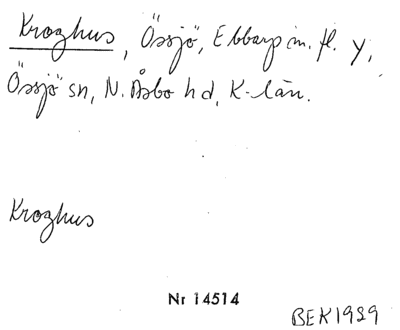 Kroghus, Össjö, Ebbarp m. fl. y,
Össjö sn, N. Åsbo hd, K-län.
Kroghus
Nr 14514
BEK1929